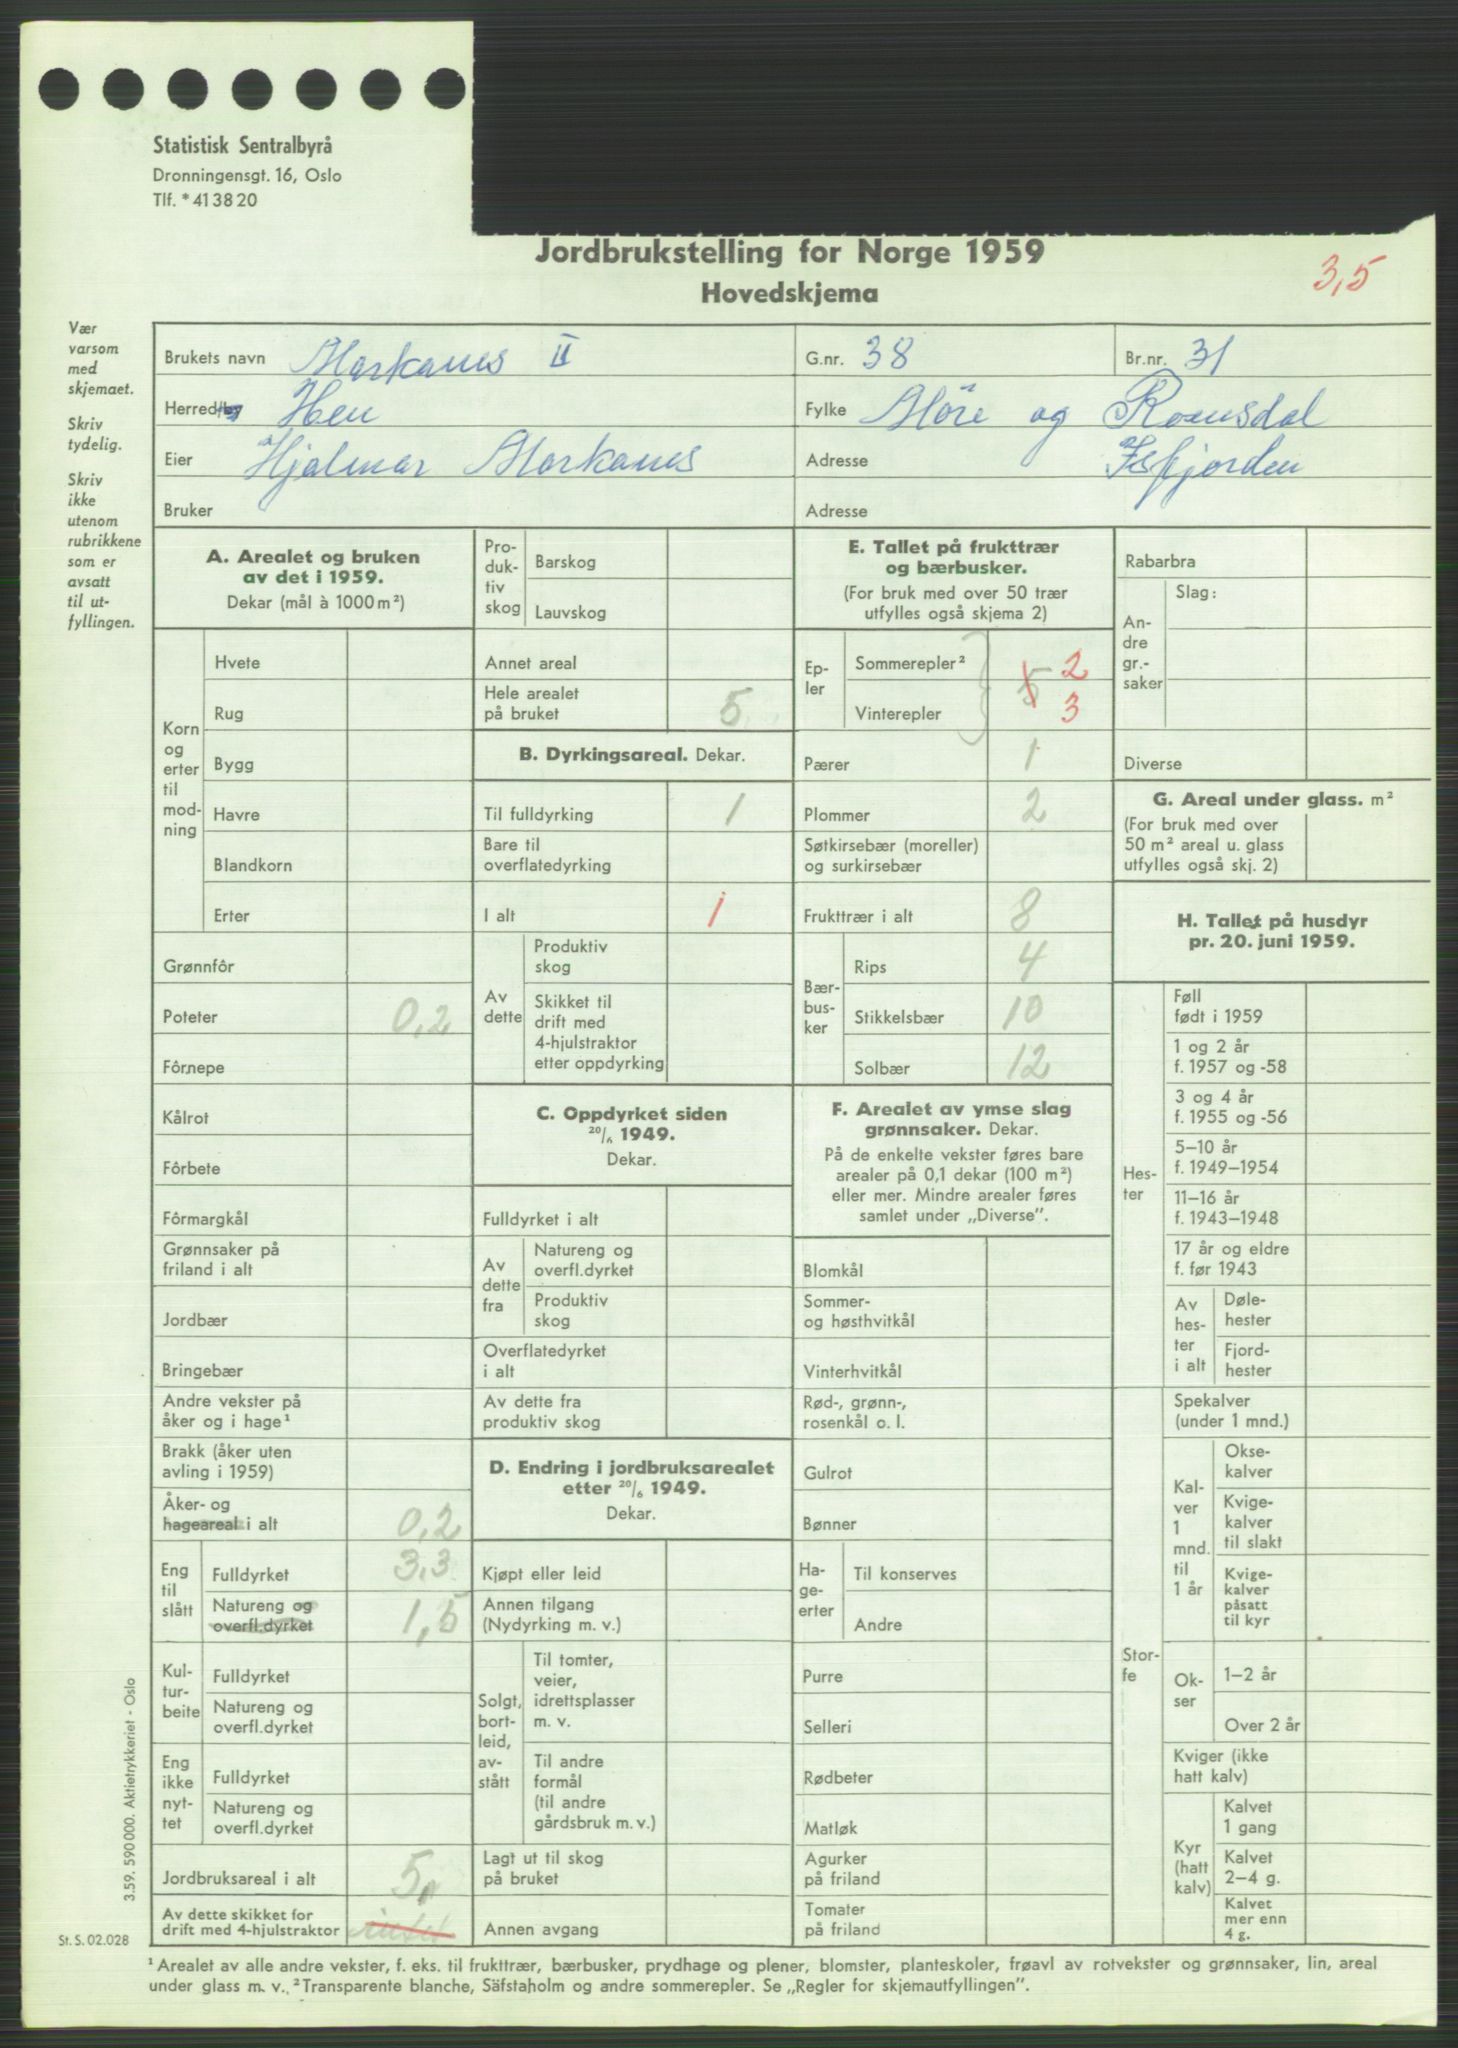 Statistisk Sentralbyrå
Dronningensgt. 16, Oslo
Tlf. * 41 38 20
Jordbrukstelling for Norge 1959
Hovedskjema
3,5
Vær
varsom
med
skjemaet.
Skriv
tydelig.
Skriv
ikke
utenom
rubrikkene
som er
avsatt
til ut-
fyllingen.
Brukets navn Morkanes II G.nr. 38 Br.nr. 31
Herred/by Hen Fylke Möre og Romsdal
Eier Hjalmar Morkanes Adresse Isfjorden
Bruker Adresse
A. Arealet og bruken
av det i 1959.
Dekar (mål à 1000 m²)
Korn
og
erter
til
mod-
ning
Hvete
Rug
Bygg
Havre
Blandkorn
Erter
Grønnfôr
Poteter 0,2
Fôrnepe
Kålrot
Fôrbete
Fôrmargkål
Grønnsaker på
friland i alt
Jordbær
Bringebær
Andre vekster på
åker og i hage¹
Brakk (åker uten
avling i 1959)
Åker- og
hageareal i alt 0,2
Eng
til
slått
Fulldyrket 3,3
Natureng og
overfl.dyrket 1,5
Kul-
tur-
beite
Fulldyrket
Natureng og
overfl.dyrket
Eng
ikke
nyt-
tet
Fulldyrket
Natureng og
overfl.dyrket
Jordbruksareal i alt 5,
Av dette skikket for
drift med 4-hjulstraktor
Pro-
duk-
tiv
skog
Barskog
Lauvskog
Annet areal
Hele arealet
på bruket 5
B. Dyrkingsareal. Dekar.
Til fulldyrking 1
Bare til
overflatedyrking
I alt 1
Av
dette
Produktiv
skog
Skikket til
drift med
4-hjulstraktor
etter oppdyrking
C. Oppdyrket siden
20/6 1949.
Dekar.
Fulldyrket i alt
Av
dette
fra
Natureng og
overfl.dyrket
Produktiv
skog
Overflatedyrket
i alt
Av dette fra
produktiv skog
D. Endring i jordbruksarealet
etter 20/6 1949.
Dekar.
Kjøpt eller leid
Annen tilgang
(Nydyrking m. v.)
Solgt,
bort-
leid,
av-
stått
Til tomter,
veier,
idrettsplasser
m. v.
Til andre
formål
(til andre
gårdsbruk m. v.)
Lagt ut til skog
på bruket
Annen avgang
E. Tallet på frukttrær
og bærbusker.
(For bruk med over 50 trær
utfylles også skjema 2)
Ep-
ler
Sommerepler² 5 2
Vinterepler 3
Pærer 1
Plommer 2
Søtkirsebær (moreller)
og surkirsebær
Frukttrær i alt 8
Bær-
bus-
ker
Rips 4
Stikkelsbær 10
Solbær 12
F. Arealet av ymse slag
grønnsaker. Dekar.
På de enkelte vekster føres bare
arealer på 0,1 dekar (100 m²)
eller mer. Mindre arealer føres
samlet under „Diverse".
Blomkål
Sommer-
og høsthvitkål
Vinterhvitkål
Rød-, grønn-,
rosenkål o. l.
Gulrot
Bønner
Ha-
ge-
erter
Til konserves
Andre
Purre
Selleri
Rødbeter
Matløk
Agurker
på friland
Tomater
på friland
Rabarbra
An-
dre
gr.-
saker
Slag:
Diverse
G. Areal under glass. m²
(For bruk med over
50 m² areal u. glass
utfylles også skj. 2)
H. Tallet på husdyr
pr. 20. juni 1959.
Hes-
ter
Føll
født i 1959
1 og 2 år
f. 1957 og -58
3 og 4 år
f. 1955 og -56
5–10 år
f. 1949–1954
11–16 år
f. 1943–1948
17 år og eldre
f. før 1943
Av
hes-
ter
i alt
Døle-
hester
Fjord-
hester
Stor-
fe
Spekalver
(under 1 mnd.)
Kal-
ver
1
mnd.
til
1 år
Okse-
kalver
Kvige-
kalver
til slakt
Kvige-
kalver
påsatt
til kyr
Ok-
ser
1–2 år
Over 2 år
Kviger (ikke
hatt kalv)
Kyr
(hatt
kalv)
Kalvet
1 gang
Kalvet
2–4 g.
Kalvet
mer enn
4 g.
3.59. 590 000. Aktietrykkeriet - Oslo
St. S. 02.028
¹ Arealet av alle andre vekster, f. eks. til frukttrær, bærbusker, prydhage og plener, blomster, planteskoler, frøavl av rotvekster og grønnsaker, lin, areal
under glass m. v. ² Transparente blanche, Säfstaholm og andre sommerepler. Se „Regler for skjemautfyllingen".